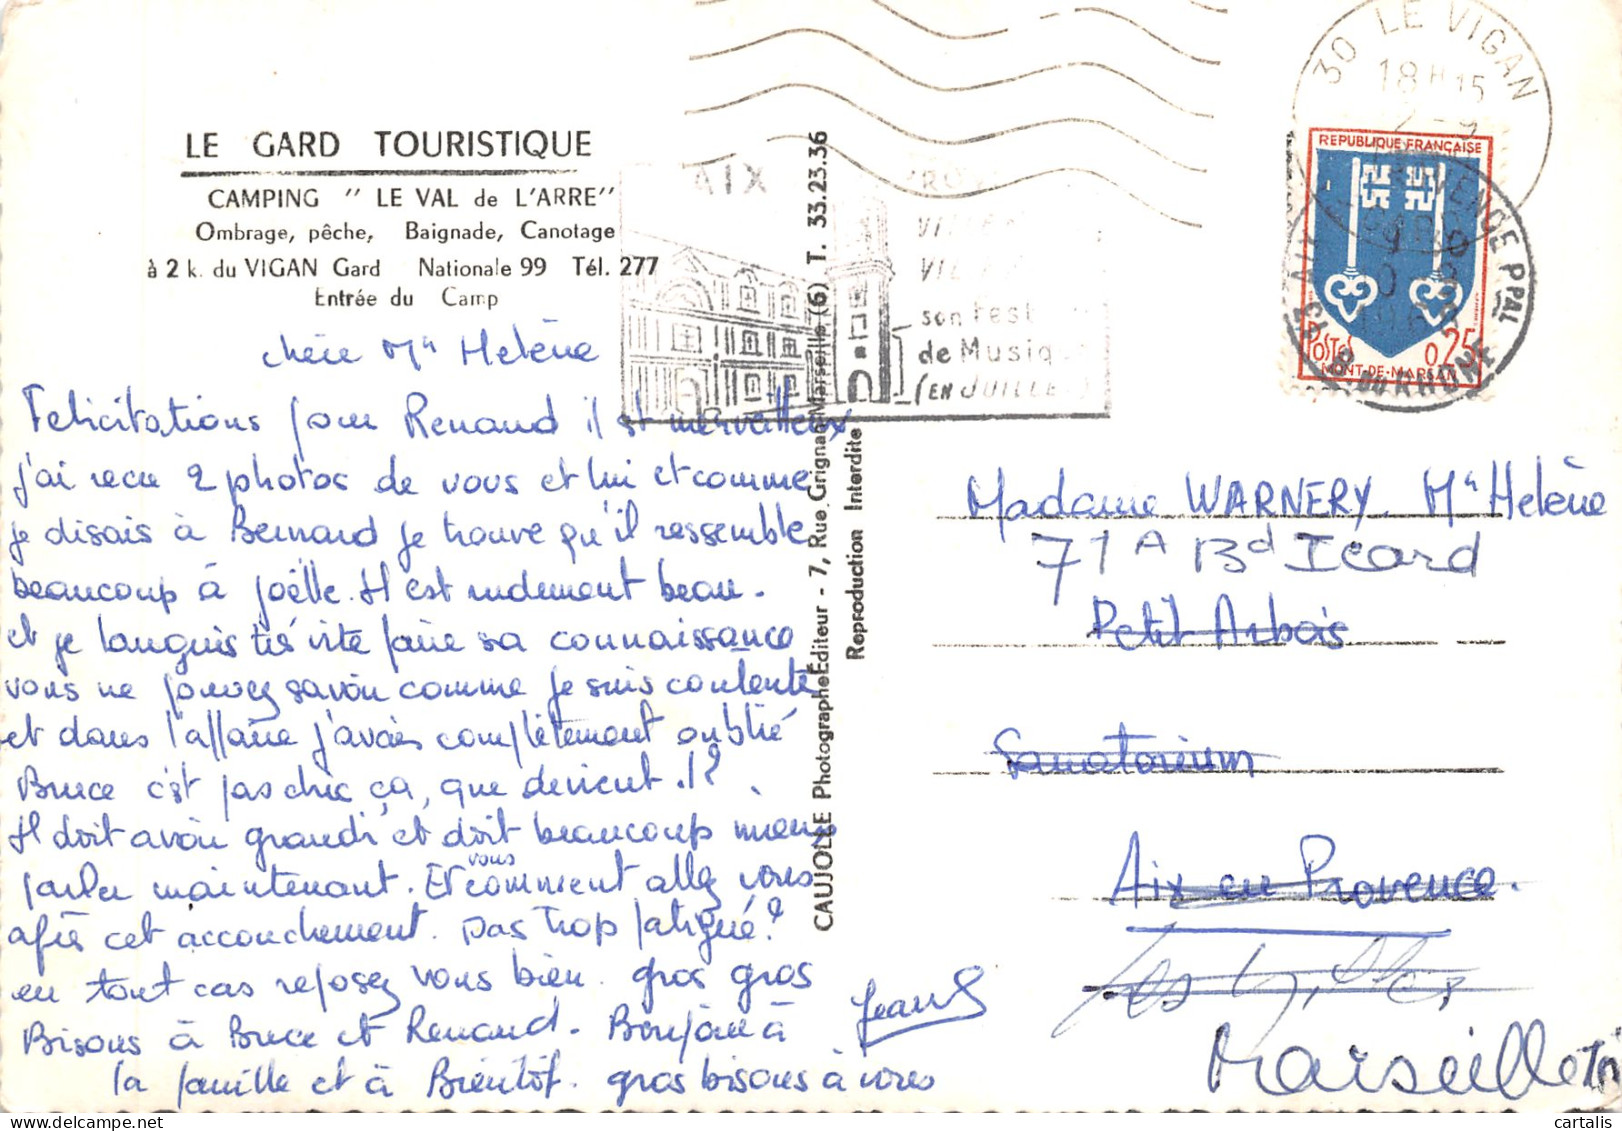 LE GARD TOURISTIQUE
CAMPING " LE VAL de L'ARRE"
Ombrage, pêche, Baignade, Canotage
à 2 k. du VIGAN Gard Nationale 99 Tél. 277
Entrée du Camp
chère Mie Helène
Felicitations pour Renaud il est merveilleux
j'ai recu 2 photos de vous et lui et comme
je disais à Bernard je trouve qu'il ressemble
beaucoup à Joëlle. Il est rudement beau.
et je languis très vite faire sa connaissance
vous ne pouvez savoir comme je suis contente
et dans l'affaire j'avais complètement oublié
Bruce c'est pas chic ça, que devient.il?
Il doit avoir grandi et doit beaucoup mieux
parler maintenant. Et vous comment allez vous
après cet accouchement. Pas trop fatigué?
en tout cas reposez vous bien. gros gros
Bisous à Bruce et Renaud. Bonjour à
la famille et à Bientôt. gros bisous à vous
CAUJOLLE Photographe Éditeur - 7, Rue Grignan Marseille (6) T. 33.23.36
Reproduction Interdite
AIX
son Fest
de Musiq
(EN JUILLE
30 LE VIGAN
18H15
2-9
REPUBLIQUE FRANÇAISE
POSTES 0,25
MONT-DE-MARSAN
PROVENCE PPAL
B. DU RHONE
Madame WARNERY. Mie Helène
71A Bd Icard
Petit Arbois
Sanatorium
Aix en Provence.
Marseille
cartalis